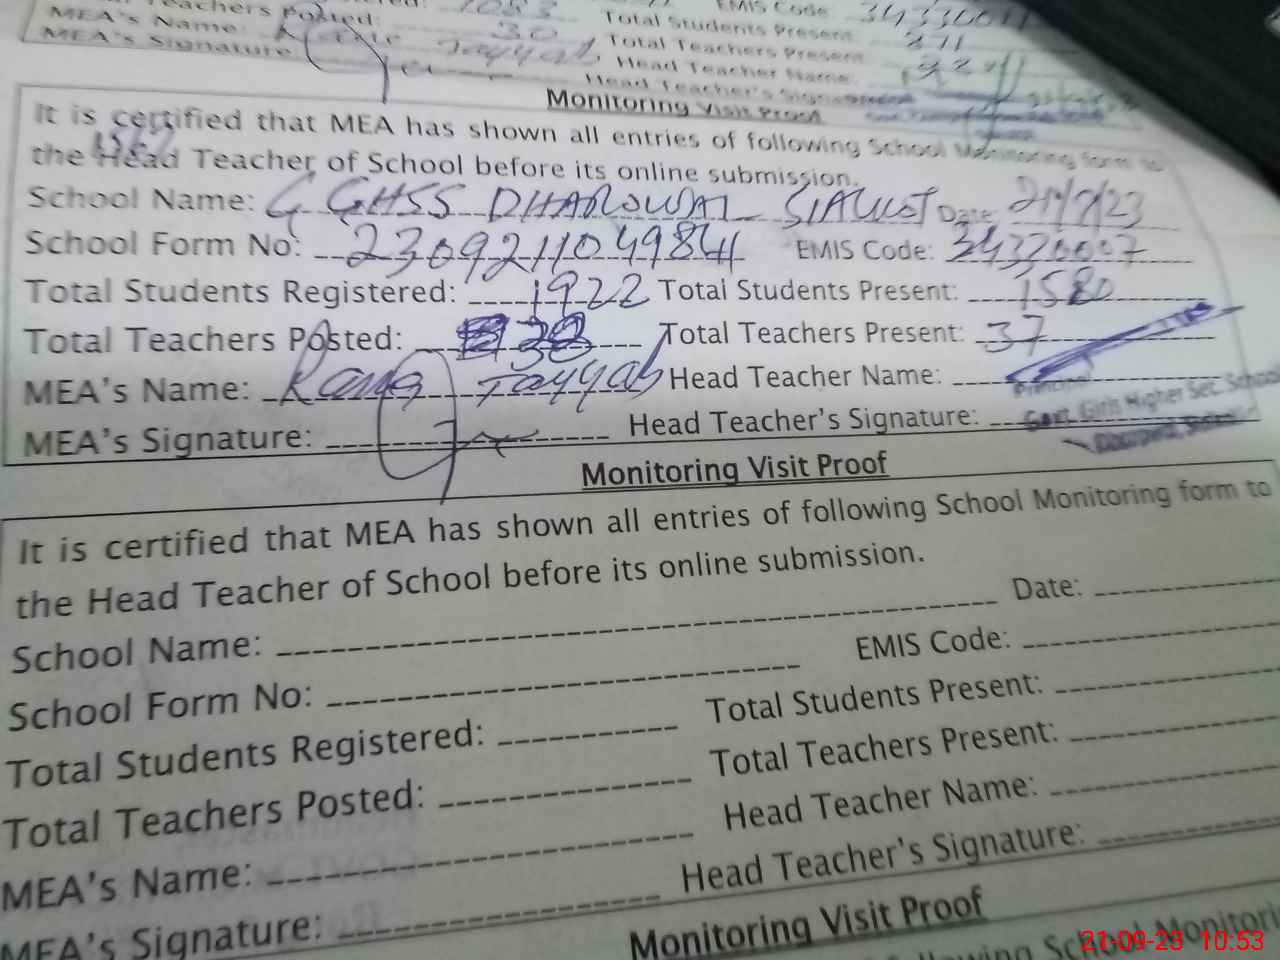 Teachers Posted: 30 EMIS Code
MEA's Name: Total Students Present:
MEA's Signature Tayyab Total Teachers Present
Head Teacher Name:
Head Teacher's Signature
Monitoring Visit Proof
It is certified that MEA has shown all entries of following School Monitoring form to
the Head Teacher of School before its online submission.
School Name: G GHSS DHAROWAL SIALKOT Date: 21/9/23
School Form No: 2309211049841 EMIS Code: 34320007
Total Students Registered: 1922 Total Students Present: 1580
Total Teachers Posted: 38 Total Teachers Present: 37
MEA's Name: Rana Tayyab Head Teacher Name:
MEA's Signature: Head Teacher's Signature:
Principal
Govt. Girls Higher Sec. School
Monitoring Visit Proof
It is certified that MEA has shown all entries of following School Monitoring form to
the Head Teacher of School before its online submission.
School Name: Date:
School Form No: EMIS Code:
Total Students Registered: Total Students Present:
Total Teachers Posted: Total Teachers Present:
MEA's Name: Head Teacher Name:
MEA's Signature: Head Teacher's Signature:
Monitoring Visit Proof
School Monitori
21-09-23 10:53